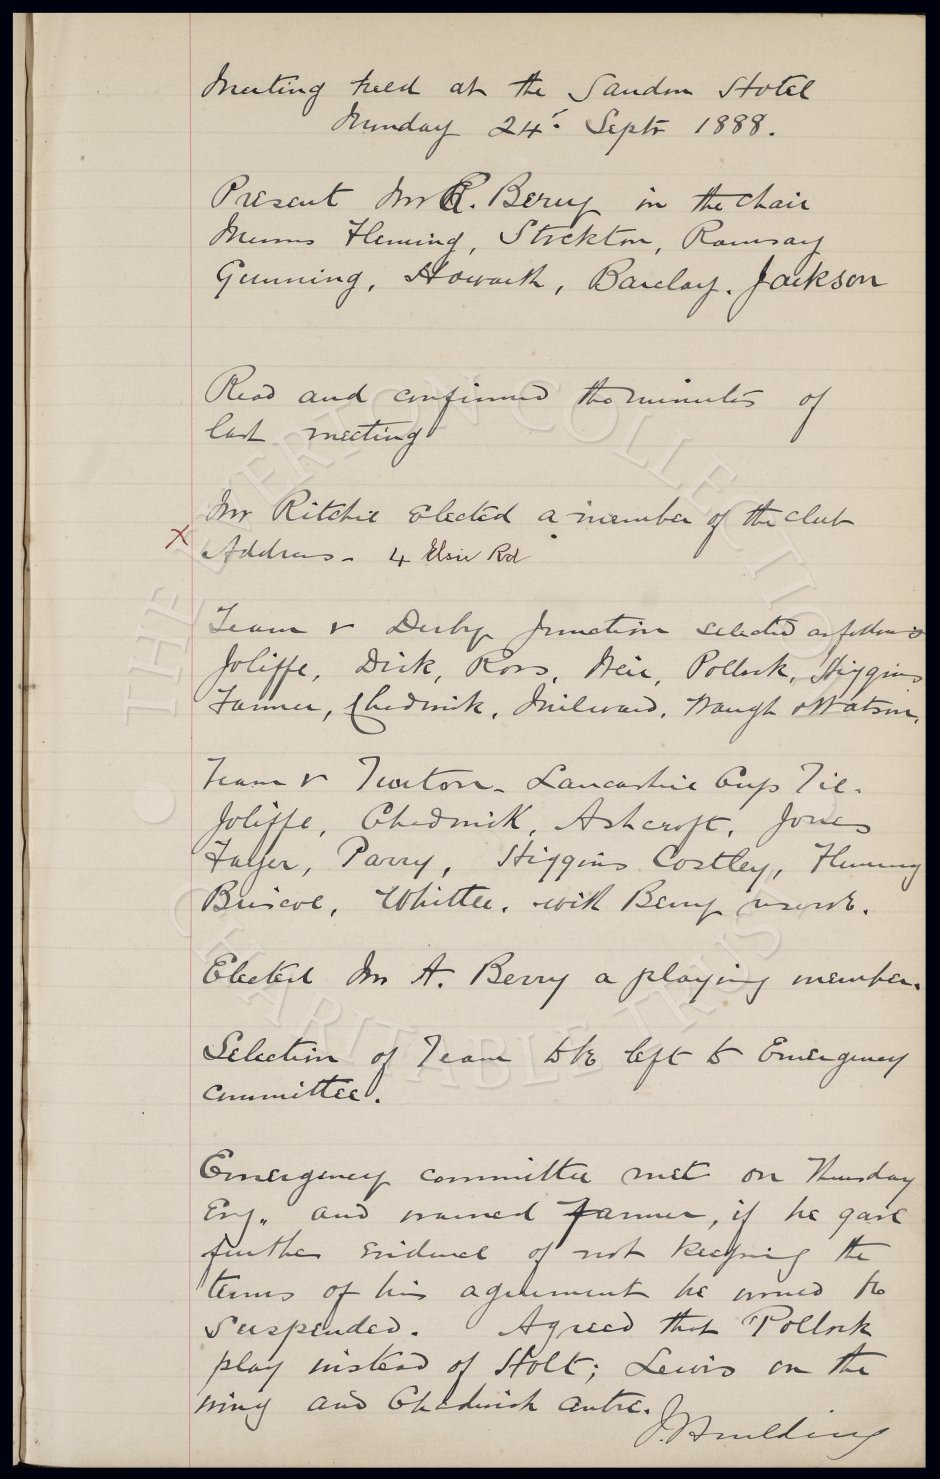 Meeting held at the Sandon Hotel
Monday 24th Septr 1888.
Present Mr R. Berry in the chair
Messrs Fleming, Stockton, Ramsay
Gunning, Howarth, Barclay. Jackson
Read and confirmed the minutes of
last meeting
Mr Ritchie elected a member of the club
x Address - 4 Elsie Rd
Team v Derby Junction selected as follows
Joliffe, Dick, Ross, Weir, Pollock, Higgins
Farmer, Chadwick, Milward, Waugh & Watson.
Team v Turton - Lancashire Cup Tie.
Joliffe, Chadwick, Ashcroft, Jones
Fayer, Parry, Higgins Costley, Fleming
Briscoe, Whittle. with Berry reserve.
Elected Mr A. Berry a playing member.
Selection of Team to be left to Emergency
committee.
Emergency committee met on Thursday
Evg. and warned Farmer, if he gave
further evidence of not keeping the
terms of his agreement he would be
suspended. Agreed that Pollock
play instead of Holt; Lewis on the
wing and Chadwick centre.
THE EVERTON COLLECTION
CHARITABLE TRUST